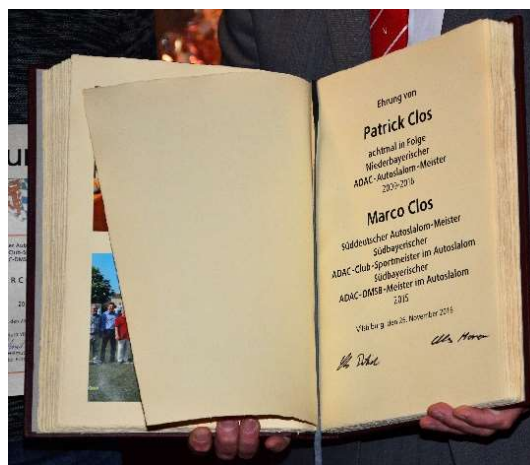 Ehrung von
Patrick Clos
achtmal in Folge
Niederbayerischer
ADAC-Autoslalom-Meister
2009-2016
Marco Clos
Süddeutscher Autoslalom-Meister
Südbayerischer
ADAC-Club-Sportmeister im Autoslalom
Südbayerischer
ADAC-DMSB-Meister im Autoslalom
2015
den 25. November 2016